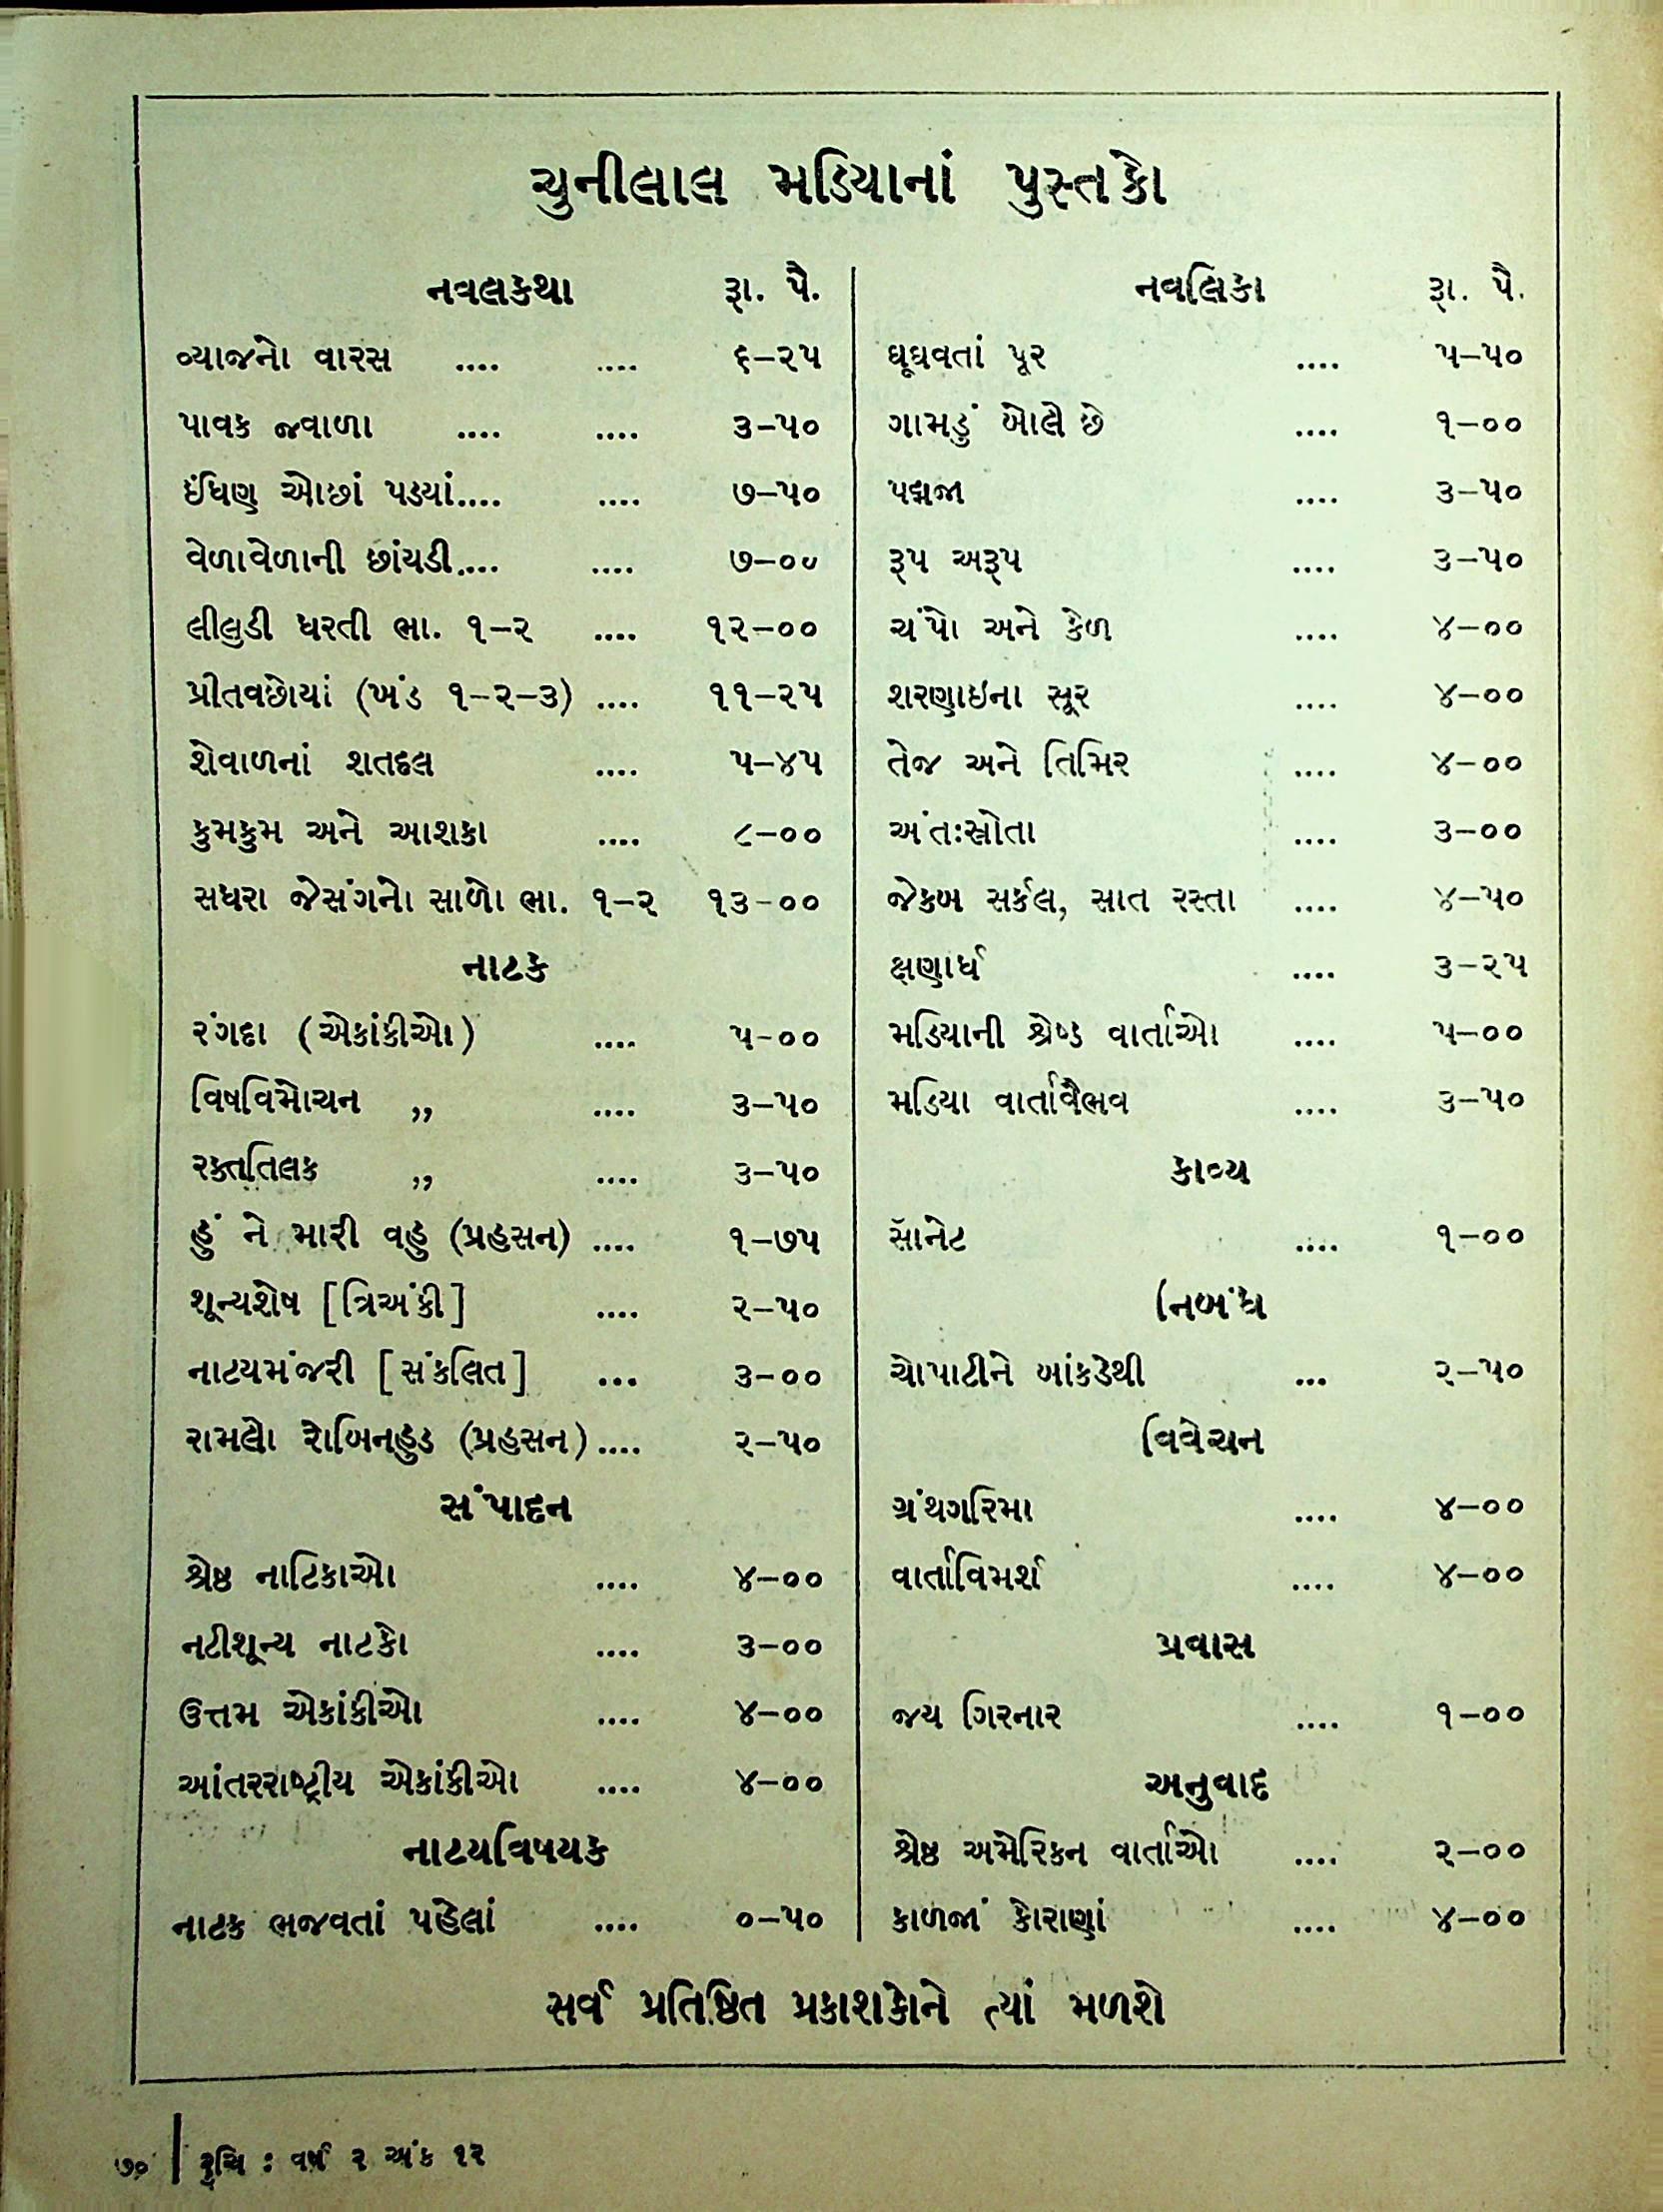 ચુનીલાલ મડિયાનાં પુસ્તકો
નવલકથા રૂા. પૈ.
વ્યાજનો વારસ .... .... ૬-૨૫
પાવક જ્વાળા .... .... ૩-૫૦
ઇંધણ ઓછાં પડ્યાં.... .... ૭-૫૦
વેળાવેળાની છાંયડી.... .... ૭-૦૦
લીલુડી ધરતી ભા. ૧-૨ .... ૧૨-૦૦
પ્રીતવછોયાં (ખંડ ૧-૨-૩) .... ૧૧-૨૫
શેવાળનાં શતદલ .... ૫-૪૫
કુમકુમ અને આશકા .... ૮-૦૦
સધરા જેસંગનો સાળો ભા. ૧-૨ ૧૩-૦૦
નાટક
રંગદા (એકાંકીઓ) .... ૫-૦૦
વિષવિમોચન ,, .... ૩-૫૦
રક્તતિલક ,, .... ૩-૫૦
હું ને મારી વહુ (પ્રહસન) .... ૧-૭૫
શૂન્યશેષ [ત્રિઅંકી] .... ૨-૫૦
નાટયમંજરી [સંકલિત] ... ૩-૦૦
રામલો રોબિનહુડ (પ્રહસન).... ૨-૫૦
સંપાદન
શ્રેષ્ઠ નાટિકાઓ .... ૪-૦૦
નટીશૂન્ય નાટકો .... ૩-૦૦
ઉત્તમ એકાંકીઓ .... ૪-૦૦
આંતરરાષ્ટ્રીય એકાંકીઓ .... ૪-૦૦
નાટયવિષયક
નાટક ભજવતાં પહેલાં .... ૦-૫૦
નવલિકા રૂા. પૈ.
ઘૂઘવતાં પૂર .... ૫-૫૦
ગામડું બોલે છે .... ૧-૦૦
પદ્મજા .... ૩-૫૦
રૂપ અરૂપ .... ૩-૫૦
ચંપો અને કેળ .... ૪-૦૦
શરણાઇના સૂર .... ૪-૦૦
તેજ અને તિમિર .... ૪-૦૦
અંતઃસ્રોતા .... ૩-૦૦
જેકબ સર્કલ, સાત રસ્તા .... ૪-૫૦
ક્ષણાર્ધ .... ૩-૨૫
મડિયાની શ્રેષ્ઠ વાર્તાઓ .... ૫-૦૦
મડિયા વાર્તાવૈભવ .... ૩-૫૦
કાવ્ય
સૉનેટ .... ૧-૦૦
નિબંધ
ચોપાટીને બાંકડેથી ... ૨-૫૦
વિવેચન
ગ્રંથગરિમા .... ૪-૦૦
વાર્તાવિમર્શ .... ૪-૦૦
પ્રવાસ
જય ગિરનાર .... ૧-૦૦
અનુવાદ
શ્રેષ્ઠ અમેરિકન વાર્તાઓ .... ૨-૦૦
કાળજાં કોરાણાં .... ૪-૦૦
સર્વ પ્રતિષ્ઠિત પ્રકાશકોને ત્યાં મળશે
૭૦ | રુચિ : વર્ષ ૨ અંક ૧૨